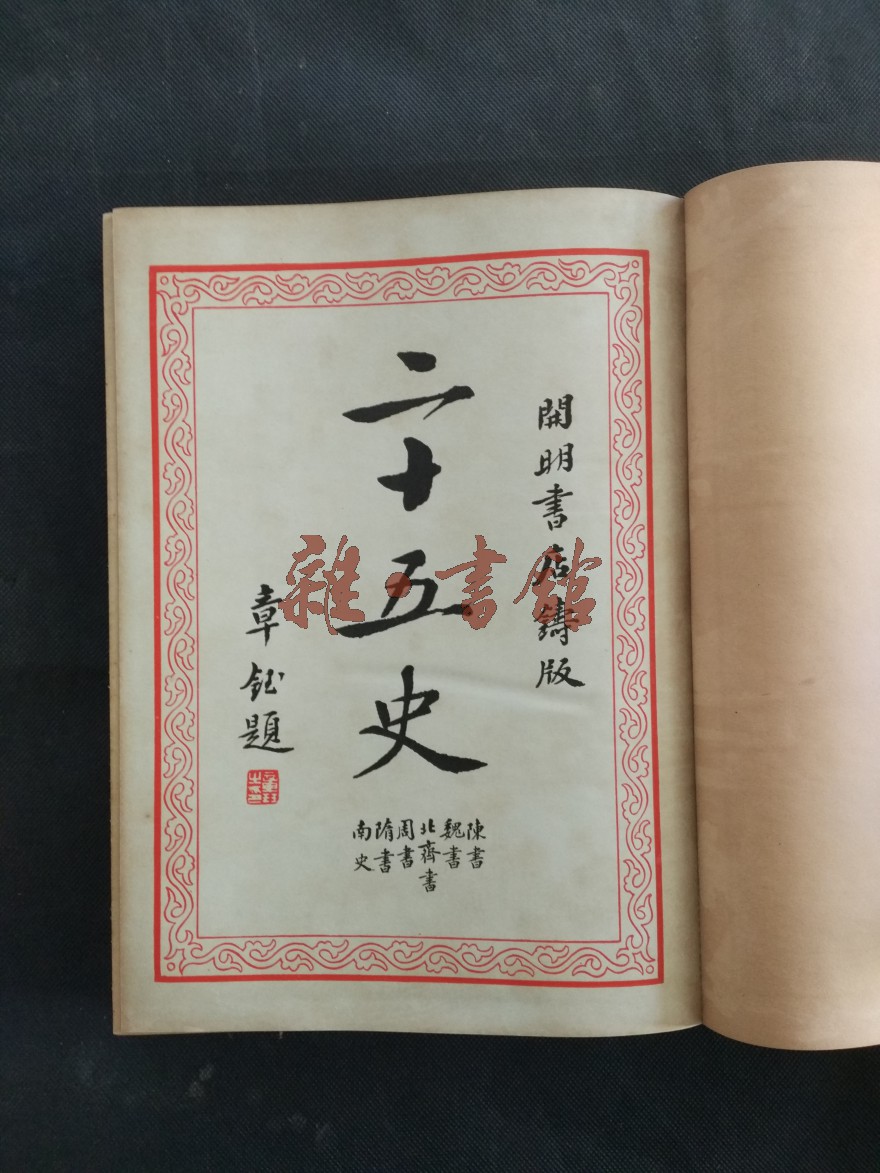 開明書店鑄版
二十五史
陳書
魏書
北齊書
周書
隋書
南史
章鈺題
雜·書館